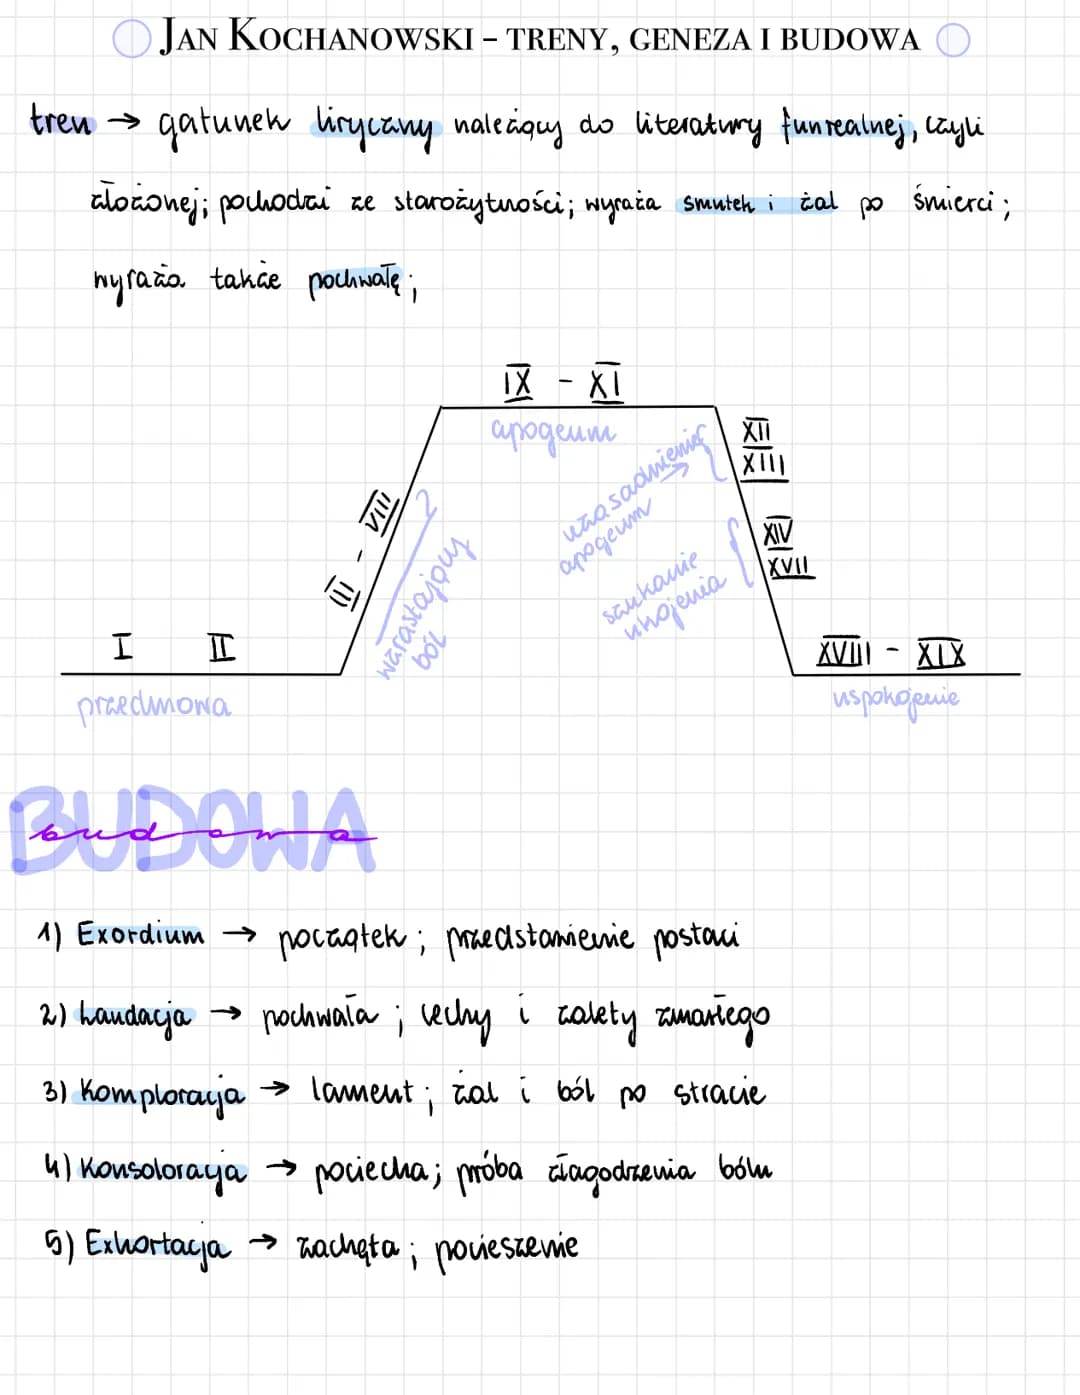 JAN KOCHANOWSKI – TRENY, GENEZA I BUDOWA
tren → gatunek liryczny należący do literatury funrealnej, czyli
złożonej; pochodzi ze starożytności; wyraża smutek i żal po śmierci;
wyraża także pochwałę;
IX - XI
apogeum
XII
XIII
uzasadnienie apogeum
III - VIII
wzrastający ból
XIV
XVII
szukanie ukojenia
I II
XVIII - XIX
przedmowa
uspokojenie
BUDOWA
budowa
1) Exordium → początek; przedstawienie postaci
2) Laudacja → pochwała; cechy i zalety zmarłego
3) Komploracja → lament; żal i ból po stracie
4) Konsoloracja → pociecha; próba złagodzenia bólu
5) Exhortacja → zachęta; pocieszenie